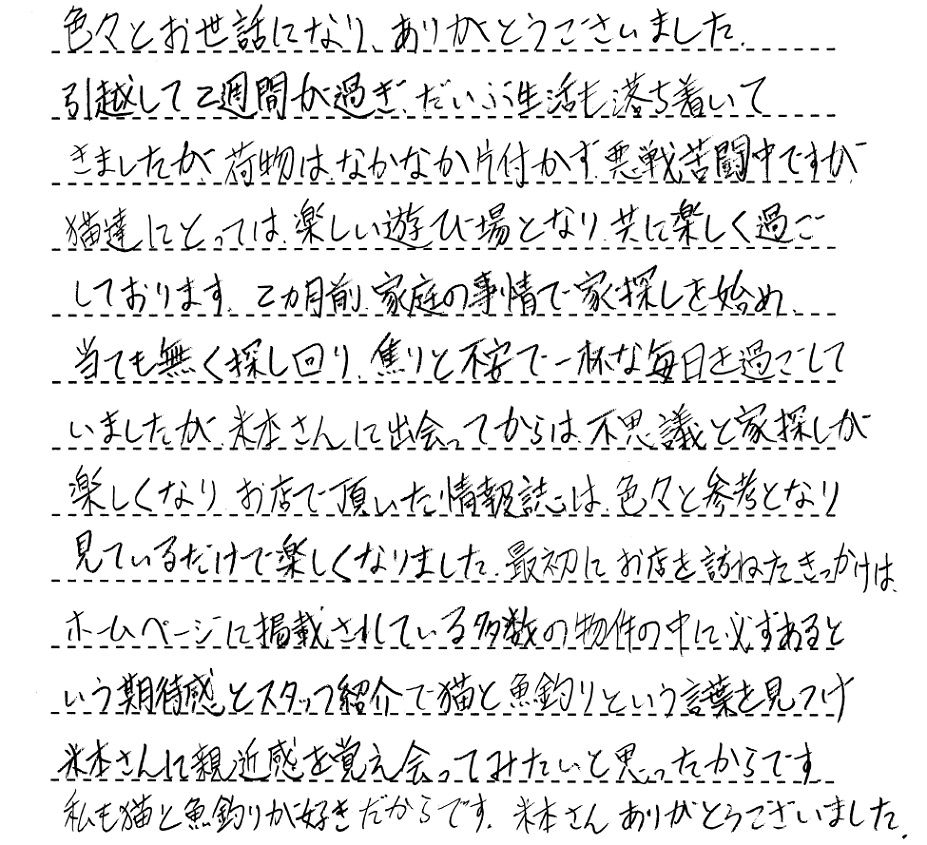 色々とお世話になり、ありがとうございました。
引越して2週間が過ぎ、だいぶ生活も落ち着いて
きましたが、荷物は、なかなか片付かず、悪戦苦闘中ですが、
猫達にとっては、楽しい遊び場となり、共に楽しく過ご
しております。2ヵ月前、家庭の事情で家探しを始め、
当ても無く探し回り、焦りと不安で一杯な毎日を過ごして
いましたが、米本さんに出会ってからは、不思議と家探しが
楽しくなり、お店で頂いた情報誌は、色々と参考となり
見ているだけで楽しくなりました。最初にお店を訪ねたきっかけは、
ホームページに掲載されている多数の物件の中に必ずあると
いう期待感とスタッフ紹介で猫と魚釣りという言葉を見つけ
米本さんに親近感を覚え会ってみたいと思ったからです
私も猫と魚釣りが好きだからです。米本さんありがとうございました。